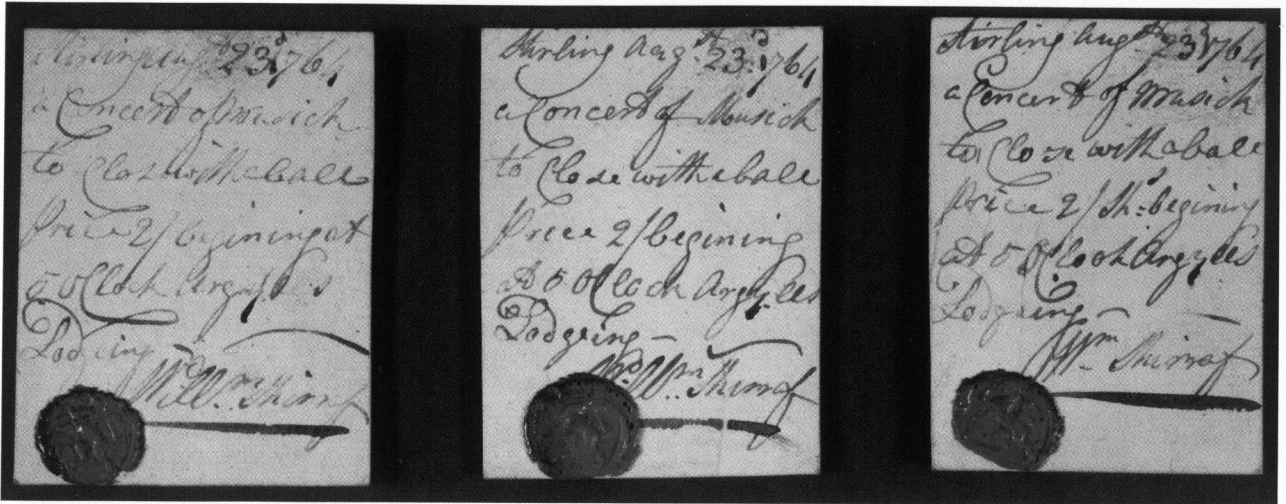 Stirling Augt. 23d. 1764
a Concert of Musick
to Close with a ball
Price 2/ begining at
5 o Clock Argylls
Lodgeing
Willm.
Stirling Augt. 23d. 1764
a Concert of Musick
to Close with a ball
Price 2/ begining
at 5 o Clock Argylls
Lodgeing —
Wm.
Stirling Augt. 23d 1764
a Concert of Musick
to Close with a ball
Price 2/ Sh:s begining
at 5 o Clock Argylls
Lodgeing —
Wm